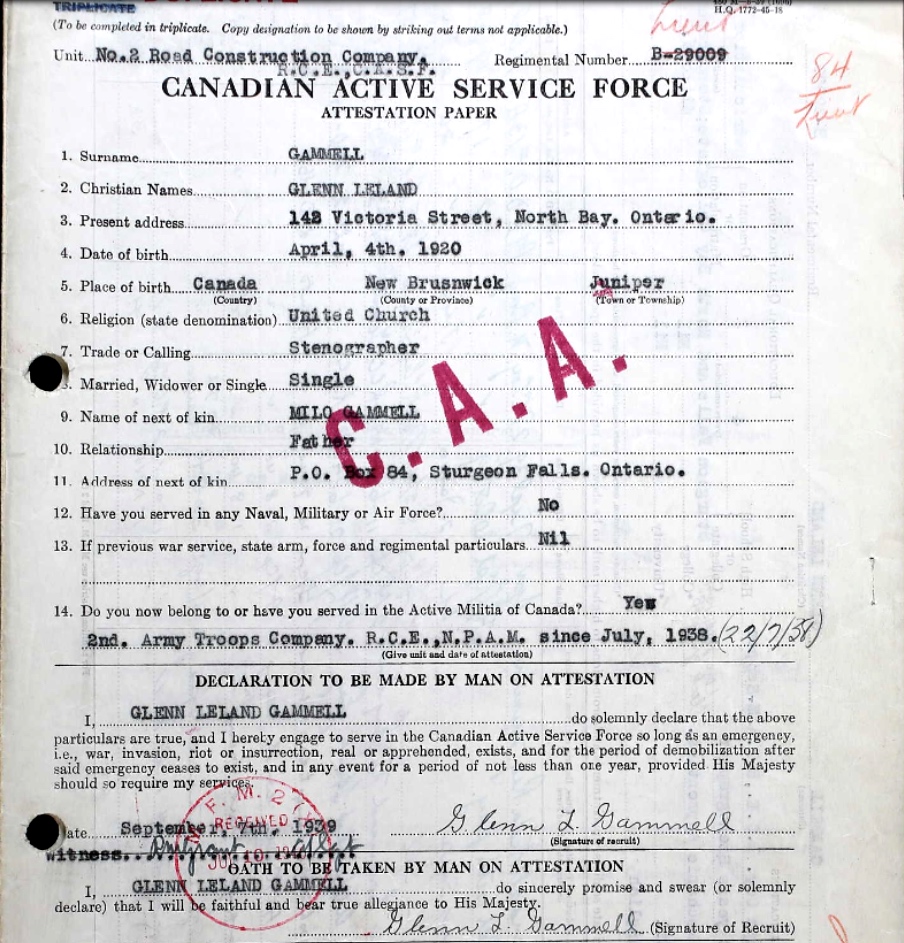 TRIPLICATE
H.Q. 1772-45-18
(To be completed in triplicate. Copy designation to be shown by striking out terms not applicable.)
Lieut
Unit No.2 Road Construction Company. Regimental Number B-29009
R.C.E.,C.A.S.F.
84
Lieut
CANADIAN ACTIVE SERVICE FORCE
ATTESTATION PAPER
1. Surname GAMMELL
2. Christian Names GLENN LELAND
3. Present address 142 Victoria Street, North Bay. Ontario.
4. Date of birth April, 4th. 1920
5. Place of birth Canada New Brusnwick Juniper
(Country) (County or Province) (Town or Township)
6. Religion (state denomination) United Church
7. Trade or Calling Stenographer
8. Married, Widower or Single Single
9. Name of next of kin MILO GAMMELL
10. Relationship Father
11. Address of next of kin P.O. Box 84, Sturgeon Falls. Ontario.
C.A.A.
12. Have you served in any Naval, Military or Air Force? No
13. If previous war service, state arm, force and regimental particulars Nil
14. Do you now belong to or have you served in the Active Militia of Canada? Yes
2nd. Army Troops Company. R.C.E.,N.P.A.M. since July, 1938. (22/7/38)
(Give unit and date of attestation)
DECLARATION TO BE MADE BY MAN ON ATTESTATION
I, GLENN LELAND GAMMELL do solemnly declare that the above
particulars are true, and I hereby engage to serve in the Canadian Active Service Force so long as an emergency,
i.e., war, invasion, riot or insurrection, real or apprehended, exists, and for the period of demobilization after
said emergency ceases to exist, and in any event for a period of not less than one year, provided His Majesty
should so require my services.
M.F.M. 2
RECEIVED
Date September, 7th, 1939 Glenn L. Gammell
(Signature of recruit)
Witness.
OATH TO BE TAKEN BY MAN ON ATTESTATION
I, GLENN LELAND GAMMELL do sincerely promise and swear (or solemnly
declare) that I will be faithful and bear true allegiance to His Majesty.
Glenn L. Gammell (Signature of Recruit)